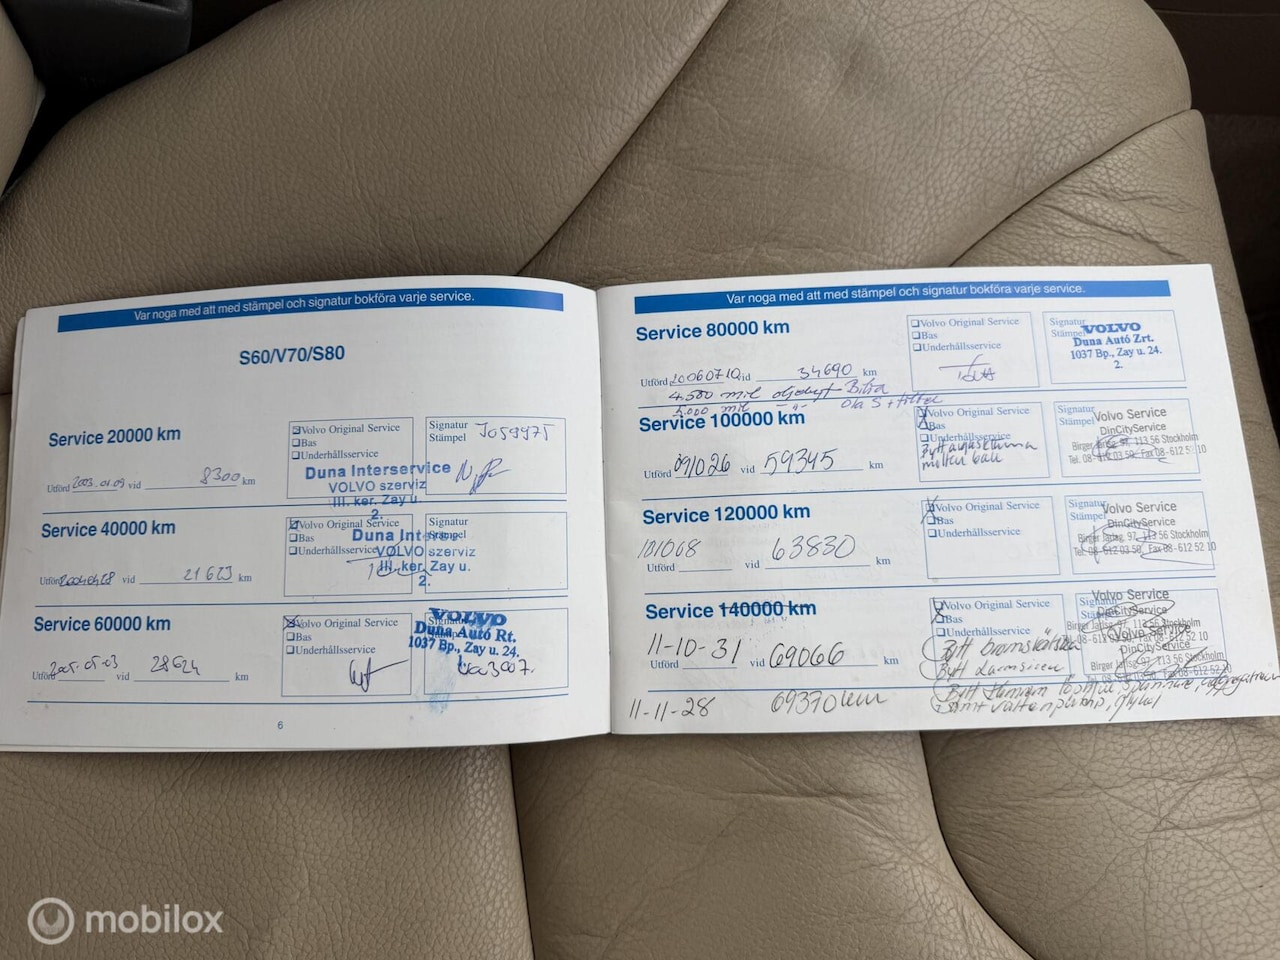 Var noga med att med stämpel och signatur bokföra varje service.
S60/V70/S80
Service 20000 km
Utförd 2003.01.09 vid 8300 km
Volvo Original Service
Bas
Underhållsservice
Signatur
Stämpel
Duna Interservice
VOLVO szerviz
III. ker. Zay u.
2.
Service 40000 km
Utförd vid 21623 km
Volvo Original Service
Bas
Underhållsservice
Signatur
Duna Interservice
VOLVO szerviz
III. ker. Zay u.
2.
Service 60000 km
Utförd 2005.05.03 vid 28624 km
Volvo Original Service
Bas
Underhållsservice
Signatur
VOLVO
Duna Autó Rt.
1037 Bp., Zay u. 24.
6
Var noga med att med stämpel och signatur bokföra varje service.
Service 80000 km
Utförd 20060710 vid 34690 km
Volvo Original Service
Bas
Underhållsservice
Signatur
Stämpel
VOLVO
Duna Autó Zrt.
1037 Bp., Zay u. 24.
2.
4.500 mil oljebyt
5.000 mil
Service 100000 km
Utförd 091026 vid 59345 km
Volvo Original Service
Bas
Signatur
Stämpel
Volvo Service
DinCityService
Birger Jarlsg. 97, 113 56 Stockholm
Tel. 08-612 03 50, Fax 08-612 52 10
Service 120000 km
101068 63830
Utförd vid km
Volvo Original Service
Bas
Underhållsservice
Signatur
Stämpel
Volvo Service
DinCityService
Birger Jarlsg. 97, 113 56 Stockholm
Tel. 08-612 03 50, Fax 08-612 52 10
Service 140000 km
11-10-31 69066
Utförd vid km
Volvo Original Service
Bas
Underhållsservice
Signatur
Volvo Service
DinCityService
Volvo Service
DinCityService
Birger Jarlsg. 97, 113 56 Stockholm
Bytt bromsvätska
Bytt
11-11-28 69370 km
mobilox